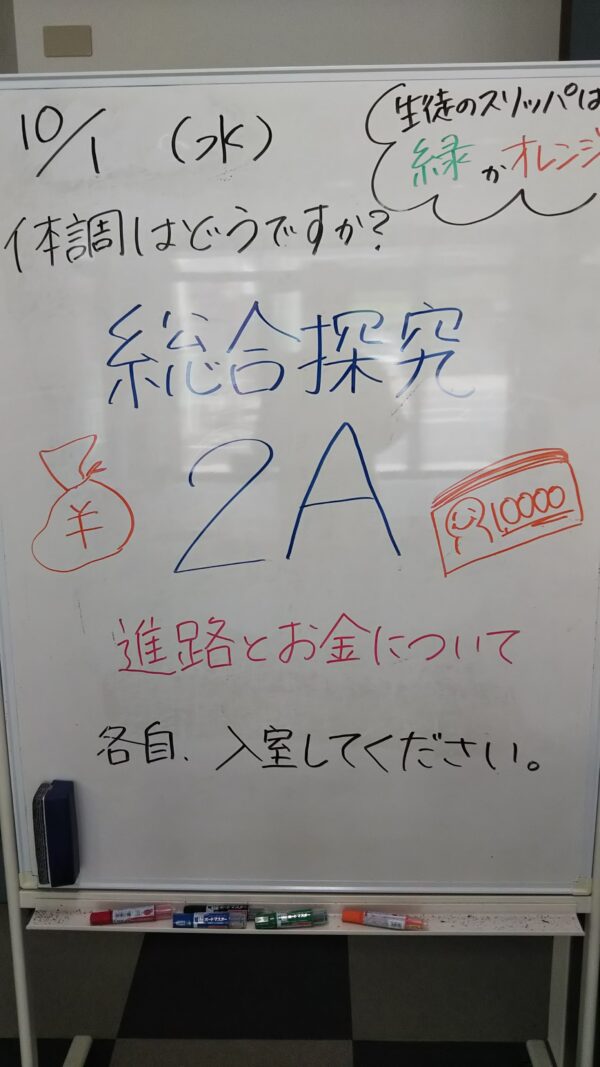 10/1 (水)
生徒のスリッパは
緑かオレンジ
体調はどうですか?
総合探究
2A
¥
10000
進路とお金について
各自、入室してください。